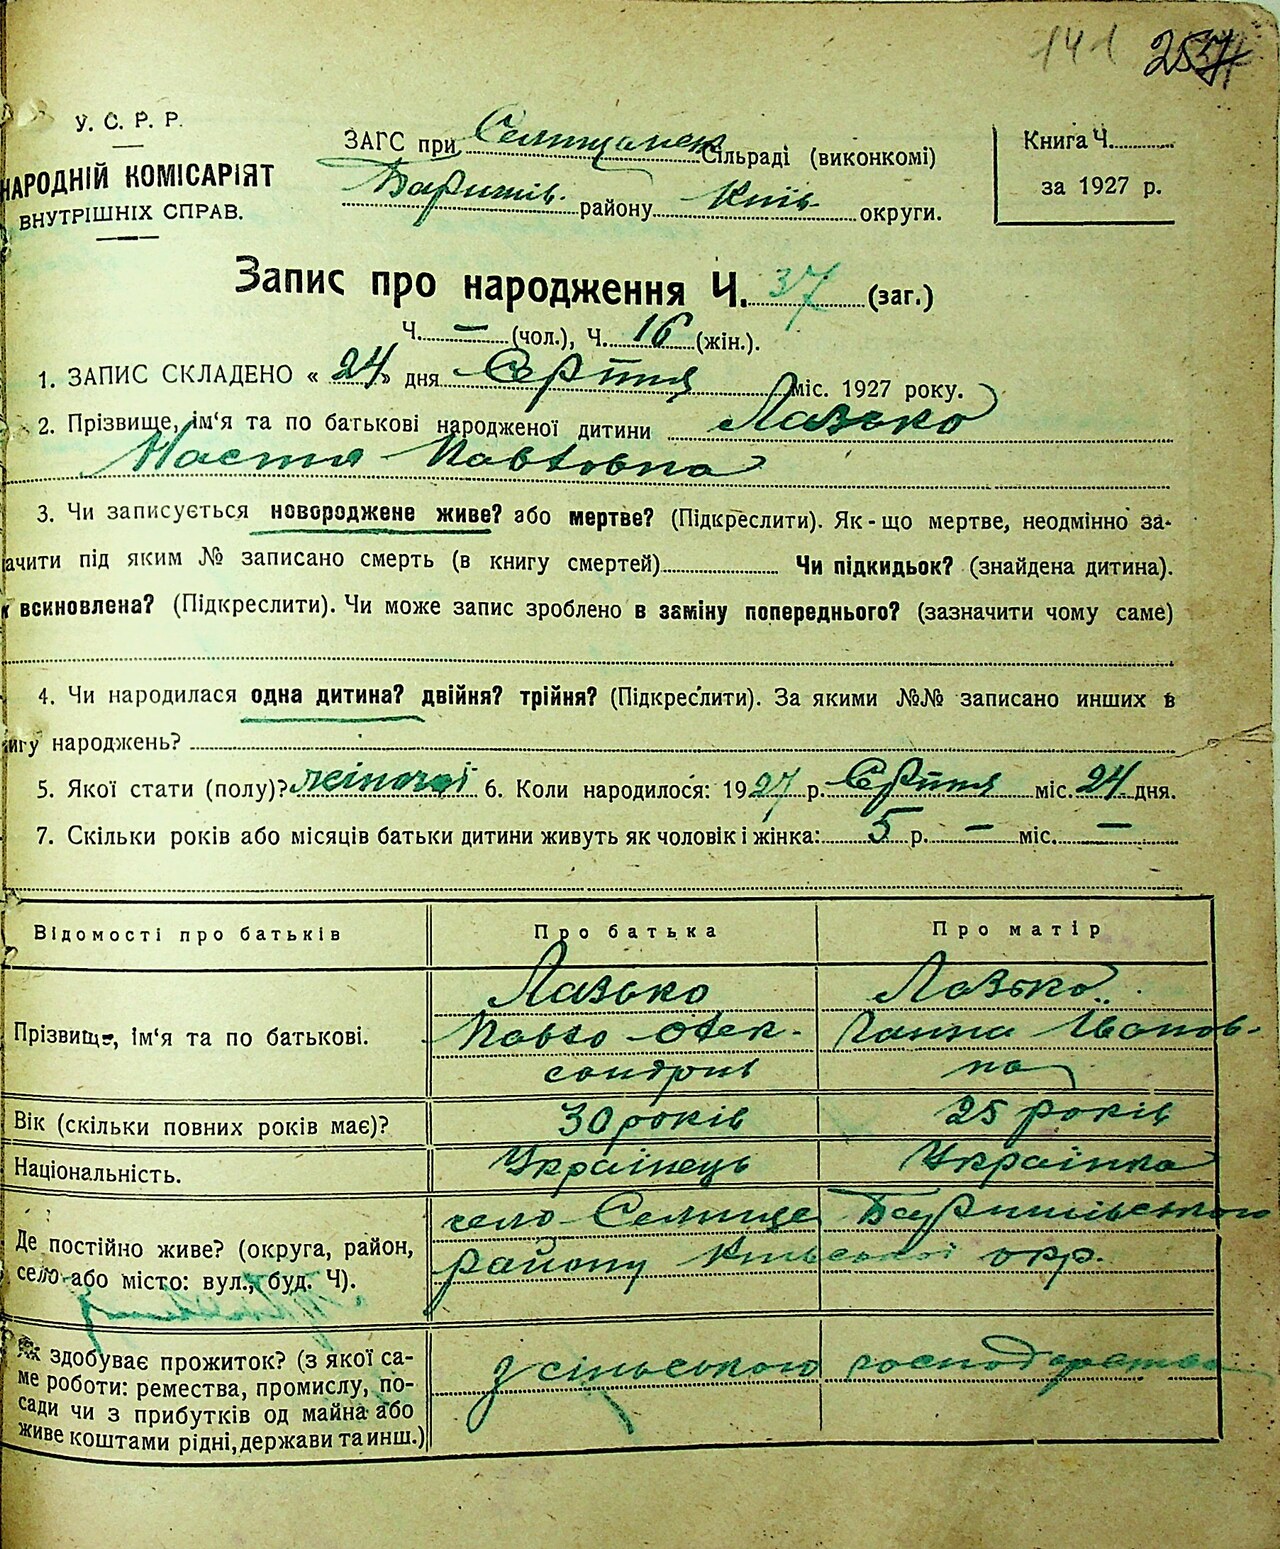 141 257
У. С. Р. Р.
НАРОДНІЙ КОМІСАРІЯТ
ВНУТРІШНІХ СПРАВ.
ЗАГС при Селищанск Сільраді (виконкомі)
Баришів. району Київ. округи.
Книга Ч.
за 1927 р.
Запис про народження Ч. 37 (заг.)
Ч. — (чол.), Ч. 16 (жін.).
1. ЗАПИС СКЛАДЕНО « 24 » дня Серпня міс. 1927 року.
2. Прізвище, ім‘я та по батькові народженої дитини Лазько
Настя Павловна
3. Чи записується новороджене живе? або мертве? (Підкреслити). Як-що мертве, неодмінно за-
ачити під яким № записано смерть (в книгу смертей) Чи підкидьок? (знайдена дитина).
всиновлена? (Підкреслити). Чи може запис зроблено в заміну попереднього? (зазначити чому саме)
4. Чи народилася одна дитина? двійня? трійня? (Підкреслити). За якими №№ записано инших в
игу народжень?
5. Якої стати (полу)? жіночої 6. Коли народилося: 1927 р. Серпня міс. 24 дня.
7. Скільки років або місяців батьки дитини живуть як чоловік і жінка: 5 р. — міс. —
Відомості про батьків Про батька Про матір
Прізвище, ім‘я та по батькові.
Лазько
Павло Олек-
сандрів
Лазько
Ганна Іванов-
на
Вік (скільки повних років має)? 30 років 25 років
Національність. Українець Українка
Де постійно живе? (округа, район,
село або місто: вул., буд. Ч).
село Селище Баришівського
району Київської окр.
Як здобуває прожиток? (з якої са-
ме роботи: ремества, промислу, по-
сади чи з прибутків од майна або
живе коштами рідні, держави та инш.)
з сільського господарства